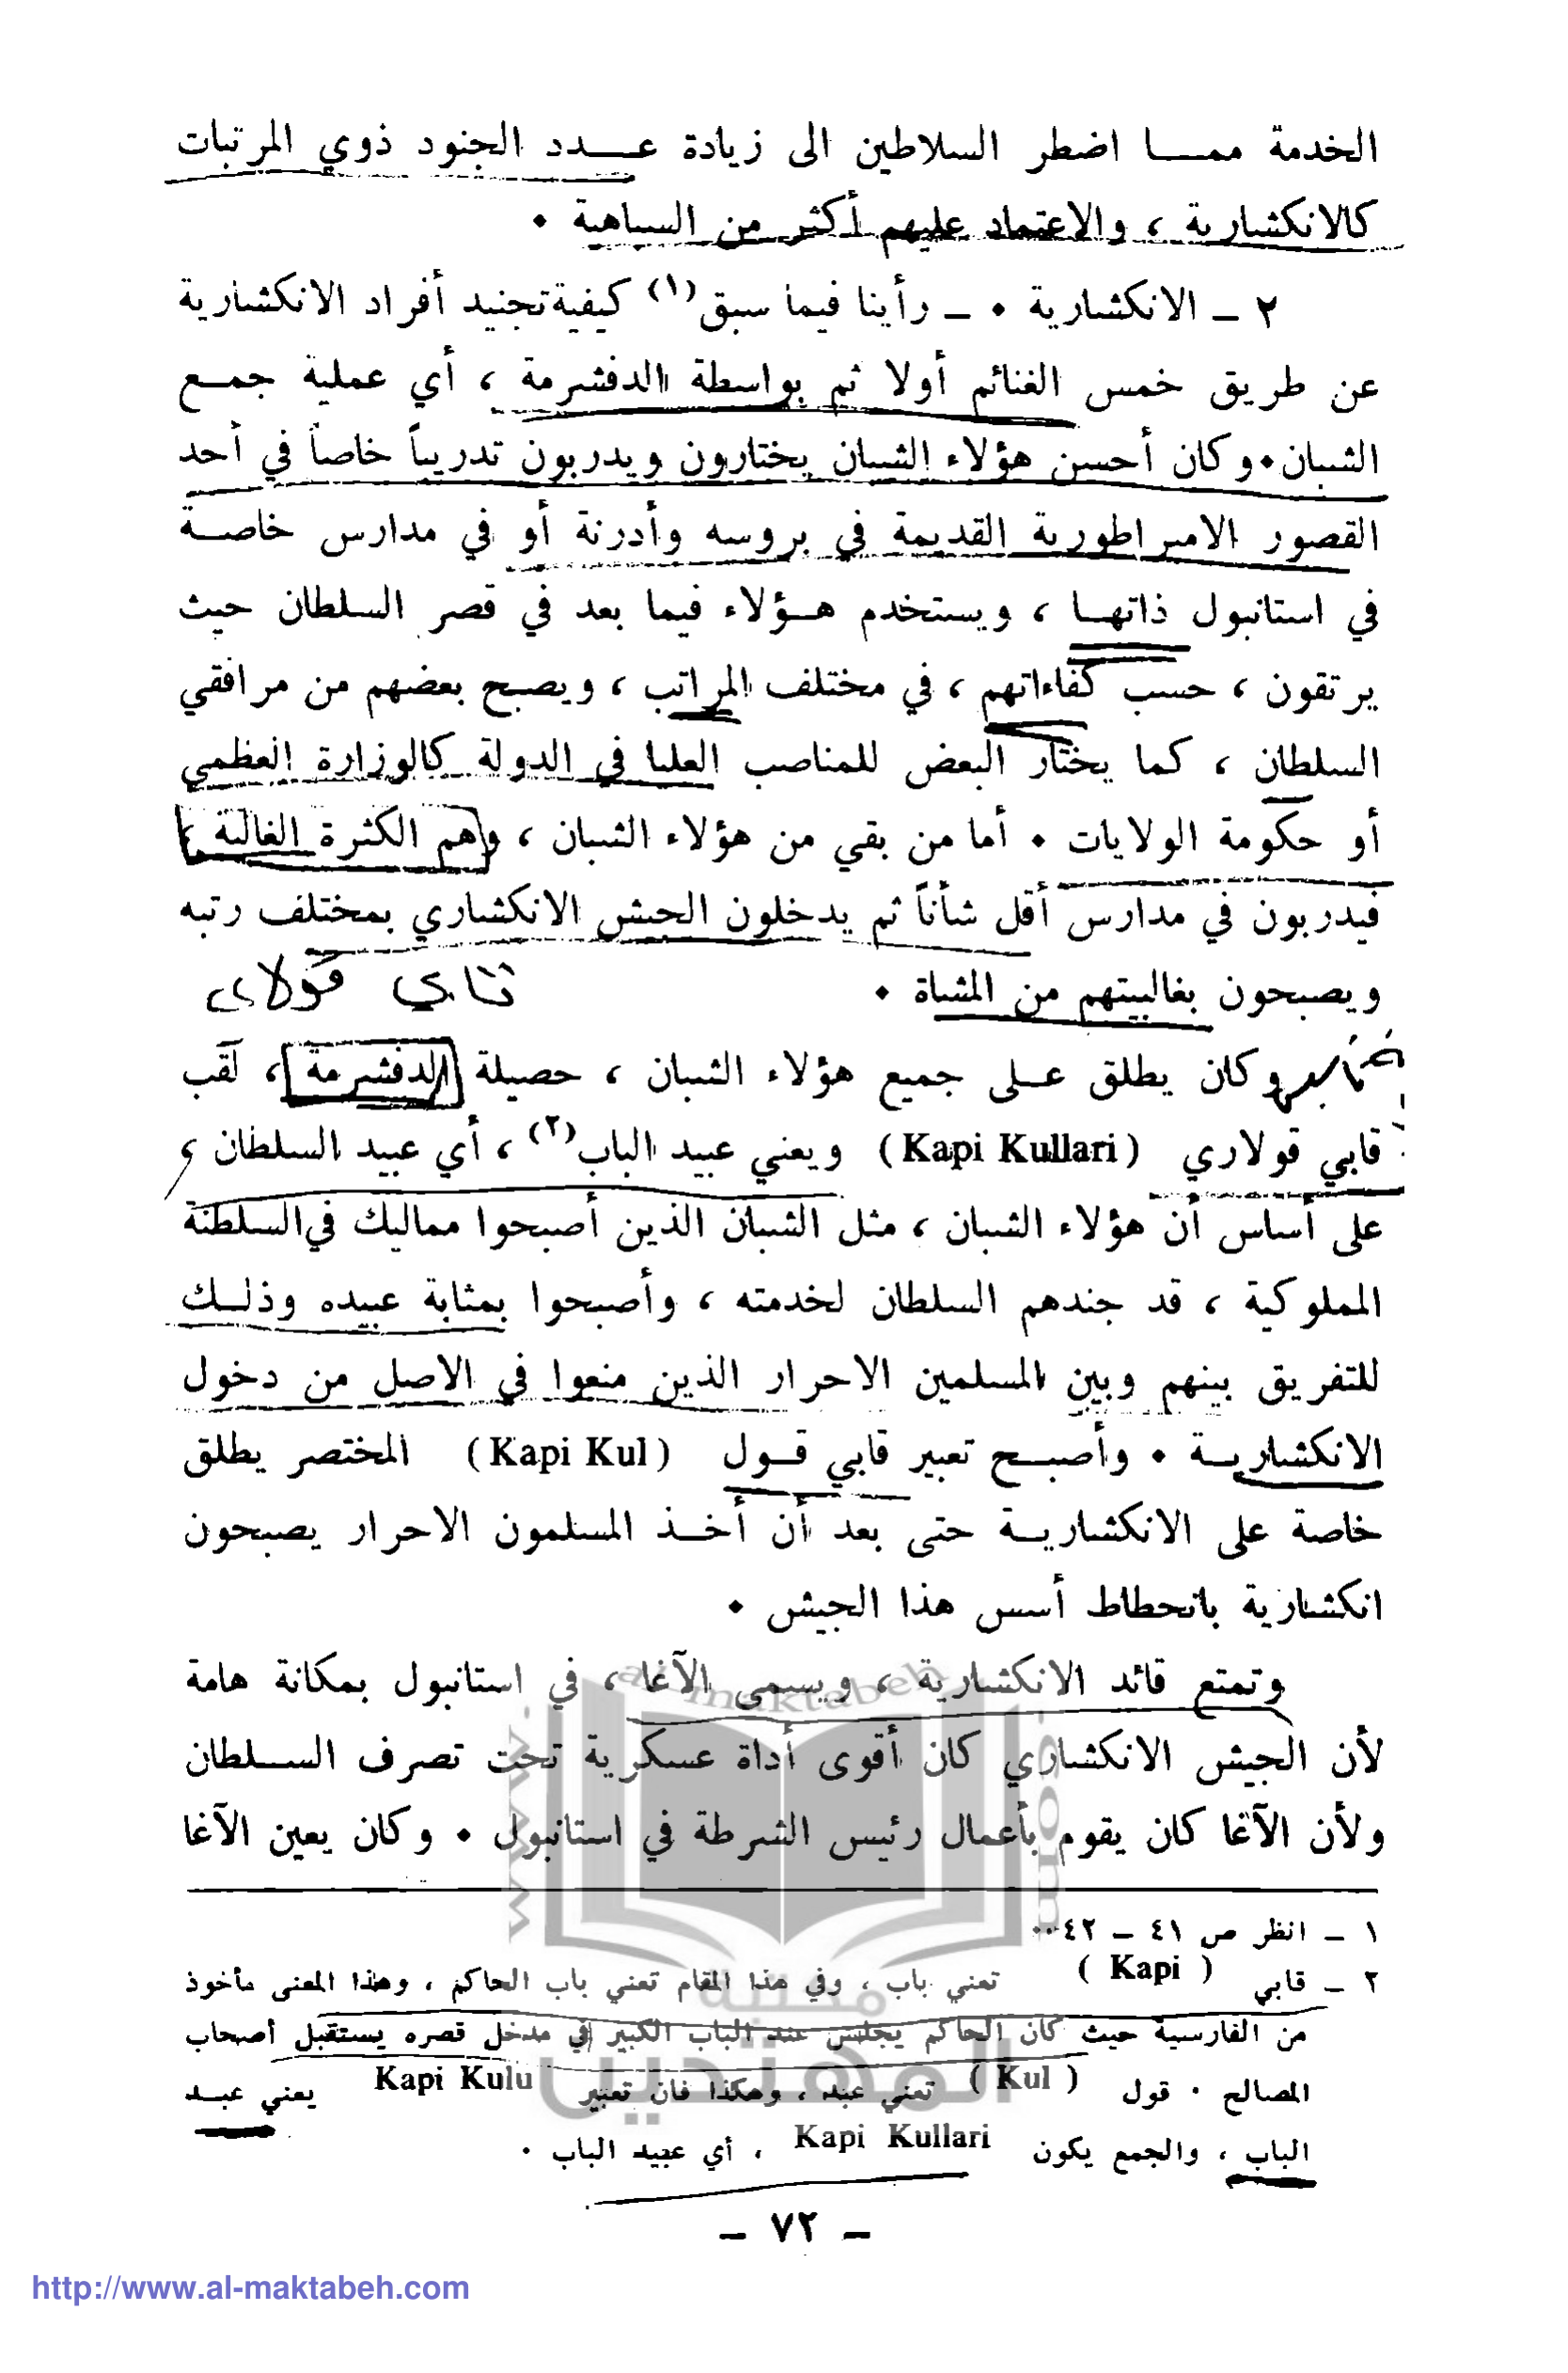 الخدمة ممـــا اضطر السلاطين الى زيادة عـــدد الجنود ذوي المرتبات
كالانكشارية ، والاعتماد عليهم أكثر من السباهية ٠
٢ ــ الانكشارية ٠ ــ رأينا فيما سبق(١) كيفية تجنيد أفراد الانكشارية
عن طريق خمس الغنائم أولا ثم بواسطة الدفشرمة ، أي عملية جمـع
الشبان٠وكان أحسن هؤلاء الشبان يختارون ويدربون تدريباً خاصاً في أحد
القصور الامبراطورية القديمة في بروسه وأدرنة أو في مدارس خاصــة
في استانبول ذاتهــا ، ويستخدم هــؤلاء فيما بعد في قصر السلطان حيث
يرتقون ، حسب كفاءاتهم ، في مختلف المراتب ، ويصبح بعضهم من مرافقي
السلطان ، كما يختار البعض للمناصب العليا في الدولة كالوزارة العظمى
أو حكومة الولايات ٠ أما من بقي من هؤلاء الشبان ، وهم الكثرة الغالبة ،
فيدربون في مدارس أقل شأناً ثم يدخلون الجيش الانكشاري بمختلف رتبه
ويصبحون بغالبيتهم من المشاة ٠
قابي قولاري
وكان يطلق عــلى جميع هؤلاء الشبان ، حصيلة الدفشرمة ، لقب
قابي قولاري (Kapi Kullari) ويعني عبيد الباب(٢) ، أي عبيد السلطان ،
على أساس أن هؤلاء الشبان ، مثل الشبان الذين أصبحوا مماليك في السلطنة
المملوكية ، قد جندهم السلطان لخدمته ، وأصبحوا بمثابة عبيده وذلــك
للتفريق بينهم وبين المسلمين الاحرار الذين منعوا في الاصل من دخول
الانكشاريــة ٠ وأصبــح تعبير قابي قــول (Kapi Kul) المختصر يطلق
خاصة على الانكشاريــة حتى بعد أن أخــذ المسلمون الاحرار يصبحون
انكشارية بانحطاط أسس هذا الجيش ٠
وتمتع قائد الانكشارية ، ويسمى الآغا ، في استانبول بمكانة هامة
لأن الجيش الانكشاري كان أقوى أداة عسكرية تحت تصرف الســلطان
ولأن الآغا كان يقوم بأعمال رئيس الشرطة في استانبول ٠ وكان يعين الآغا
١ ــ انظر ص ٤١ ــ ٤٢٠٠
٢ ــ قابي ( Kapi ) تعني باب ، وفي هذا المقام تعني باب الحاكم ، وهذا المعنى مأخوذ
من الفارسية حيث كان الحاكم يجلس عند الباب الكبير في مدخل قصره يستقبل أصحاب
المصالح ٠ قول ( Kul ) تعني عبد ، وهكذا فان تعبير Kapi Kulu يعني عبــد
الباب ، والجمع يكون Kapi Kullari ، أي عبيد الباب ٠
ــ ٧٢ ــ
al-maktabeh
مكتبة
المهتدين
http://www.al-maktabeh.com